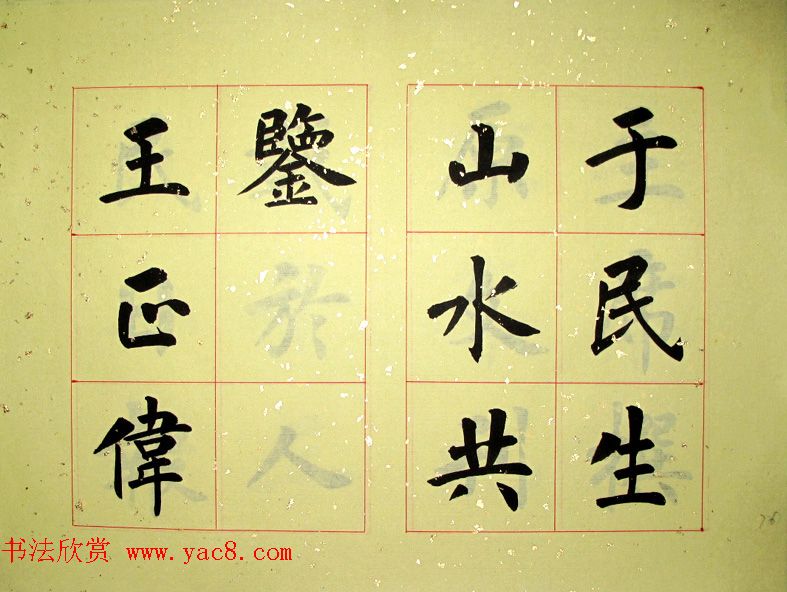 于民生
山水共
鑒
王正偉
书法欣赏 www.yac8.com